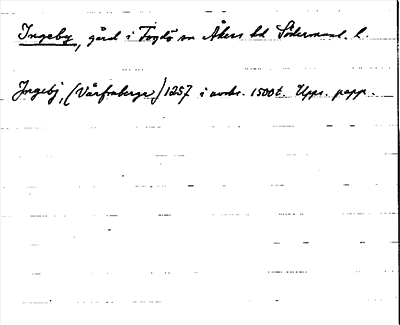 Ingeby, gård i Fogdö sn Åkers hd Södermanl. l.
Jngebj, (Vårfruberga) 1257 i avskr. 1500t. Upps. papp.